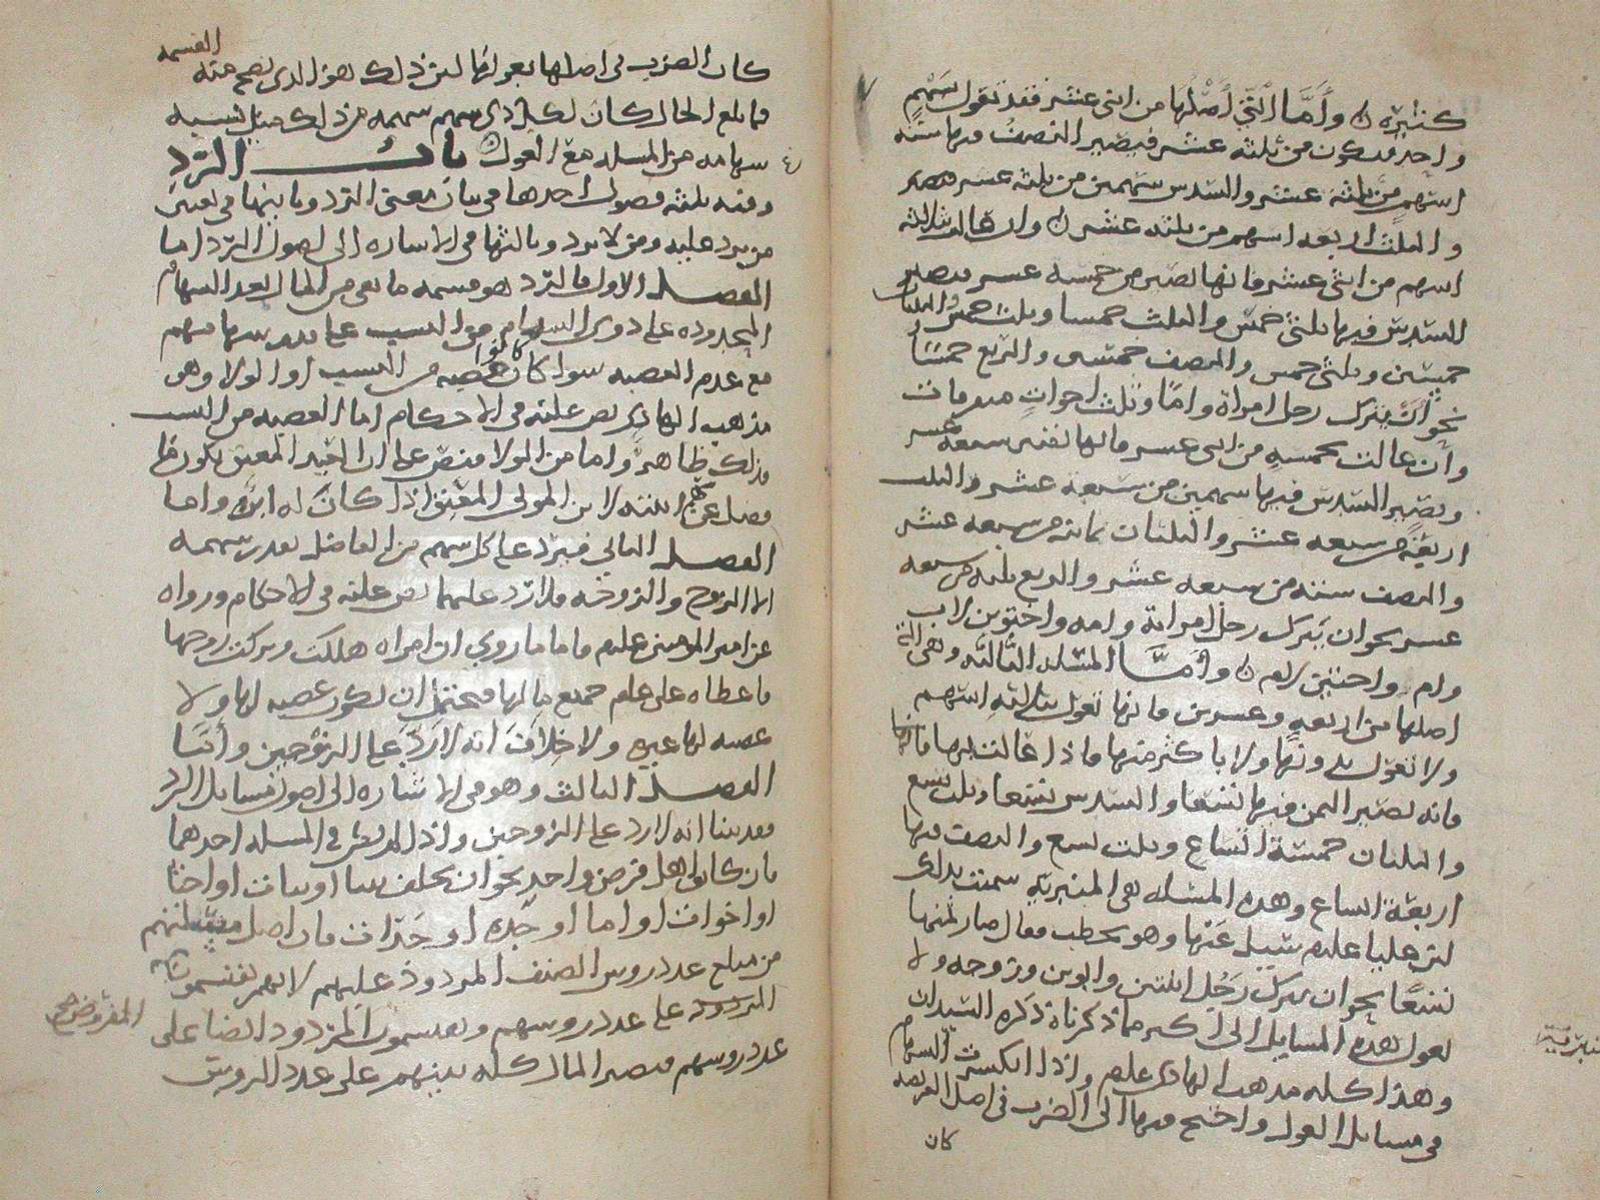 كثيرة ن وأما التي أصلها من اثنى عشر فقد تعول بسهم
واحد فيكون من ثلثة عشر فيصير النصف فيها ستة
اسهم من ثلثة عشر والسدس سهمين من ثلثة عشر
والثلث اربعة اسهم من ثلثة عشر ن وان عالت بثلاثة
اسهم من اثنى عشر فانها تصير من خمسة عشر فيصير
السدس فيها ثلثى خمس والثلث خمسا وثلث خمس والثلثان
خمسين وثلثى خمس والنصف خمسى والربع خمسا
نحو ان يترك رجل امراة واما وثلث اخوات
وان عالت بخمسة من اثنى عشر فانها تصير سبعة عشر
ويصير السدس فيها سهمين من سبعة عشر والثلث
اربعة من سبعة عشر والثلثان ثمانية من سبعة عشر
والنصف ستة من سبعة عشر والربع ثلثة من سبعة
عشر نحو ان يترك رجل امراة وامه واختين لاب
وام واختين لام ن وأما المسئلة الثالثة وهى التي
اصلها من اربعة وعشرين فانها تعول بثلاثة اسهم
ولا تعول بدونها ولا باكثر منها فاذا عالت بها فانها
فانه يصير الثمن فيها تسعا والسدس تسعا وثلث تسع
والثلثان خمسة اتساع وثلث تسع والنصف فيها
اربعة اتساع وهذه المسئلة هى المنبرية سميت بذلك
لان عليا عليلم سيل عنها وهو يخطب فقال صار ثمنها
تسعا نحو ان يترك رجل ابنتين وابوين وزوجه ولا
تعول هذه المسايل الى اكثر مما ذكرناه ذكره السيدان
وهذا كله مذهب الهادى عليلم واذا انكسرت السهام
فى مسايل العول واحتيج فيها الى الضرب فى اصل الفريضه
كان
كان الضرب فى اصلها بعولها لان ذلك هو الذى تصح منه القسمه
فما بلغ الحال كان لكل ذى سهم سهمه من ذلك مثل نسبة
سهامه من المسلة مع العول ن باب الرد
وفيه ثلثة فصول احدها فى بيان معنى الرد وثانيها فى تعيين
من يرد عليه ومن لا يرد وثالثها فى الاشاره الى اصول الرد اما
الفصل الاول فالرد هو قسمة ما بقى من المال بعد السهام
المحدوده على ذوى السهام من النسب على قدر سهامهم
مع عدم العصبه سوا كانوا عصبه من النسب او الولا وهو
مذهب الهادى نص عليه فى الاحكام اما العصبه من النسب
فذلك ظاهر واما من الولا فنص على ان
فضل عن ابنته لابن المولى المعتق اذا كان له ابن واما
الفصل الثانى فيرد على كل سهم من الفاضل بقدر سهمه
الا الزوج والزوجه فلا رد عليهما نص عليه فى الاحكام ورواه
عن امير المومنين عليلم فاما ما روي ان امراه هلكت وتركت زوجها
فاعطاه على عليلم جميع مالها فيحتمل ان يكون عصبه لها ولا
عصبه لها غيره ولا خلاف انه لا رد على الزوجين وأما
الفصل الثالث وهو فى الاشاره الى اصول مسايل الرد
فقد بينا انه لا رد على الزوجين واذا لم يكن فى المسلة احدهما
فان كانوا اهل فرض واحد نحو ان يخلف بنتا او بنات او اختا
او اخوات او اما او جده او جدات فان اصل مسئلتهم
من مبلغ عدد روس الصنف المردود عليهم لانهم يقتسمون
المفروض
المردود على عدد روسهم ويقتسمون المردود ايضا على
عدد روسهم فيصير المال كله بينهم على عدد الروس